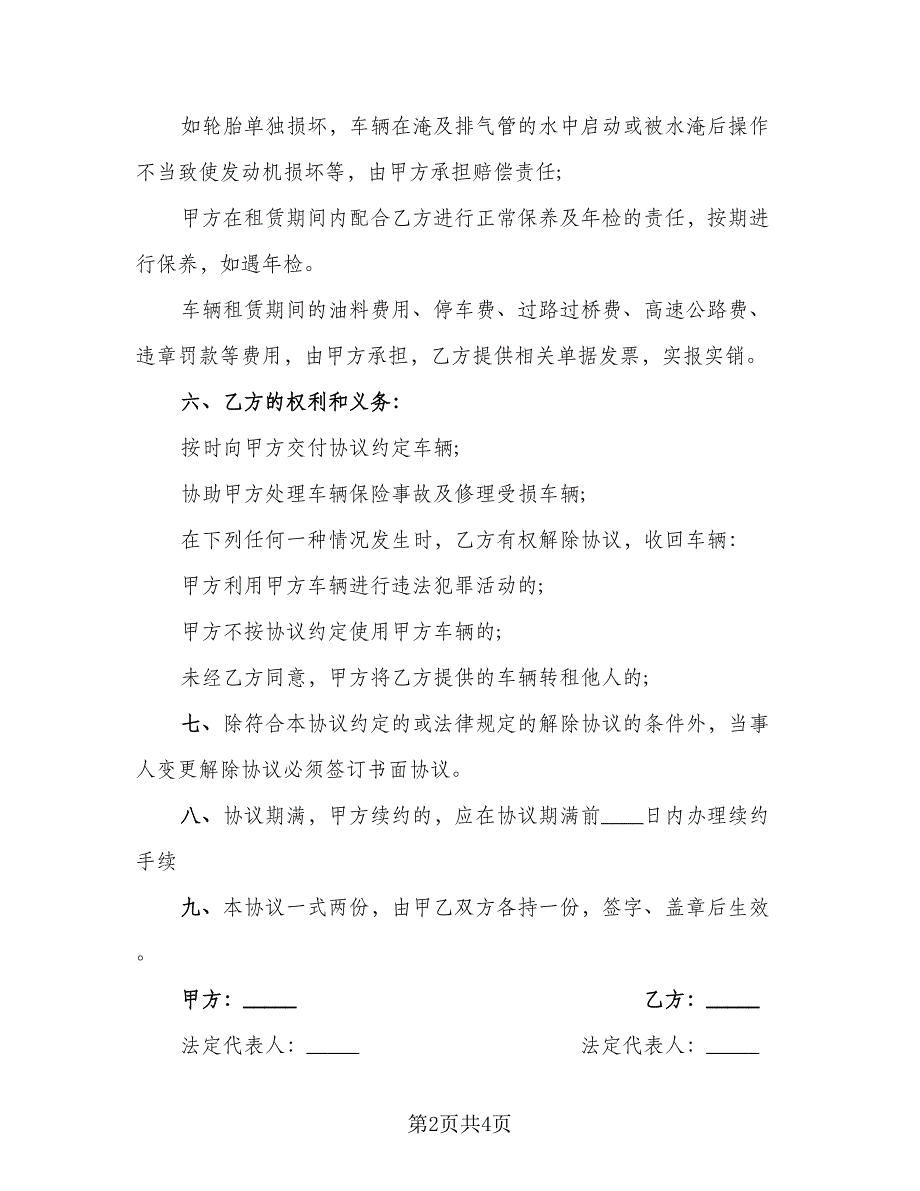 如轮胎单独损坏，车辆在淹及排气管的水中启动或被水淹后操作
不当致使发动机损坏等，由甲方承担赔偿责任;
甲方在租赁期间内配合乙方进行正常保养及年检的责任，按期进
行保养，如遇年检。
车辆租赁期间的油料费用、停车费、过路过桥费、高速公路费、
违章罚款等费用，由甲方承担，乙方提供相关单据发票，实报实销。
六、乙方的权利和义务：
按时向甲方交付协议约定车辆;
协助甲方处理车辆保险事故及修理受损车辆;
在下列任何一种情况发生时，乙方有权解除协议，收回车辆：
甲方利用甲方车辆进行违法犯罪活动的;
甲方不按协议约定使用甲方车辆的;
未经乙方同意，甲方将乙方提供的车辆转租他人的;
七、除符合本协议约定的或法律规定的解除协议的条件外，当事
人变更解除协议必须签订书面协议。
八、协议期满，甲方续约的，应在协议期满前____日内办理续约
手续
九、本协议一式两份，由甲乙双方各持一份，签字、盖章后生效
。
甲方：_____ 乙方：_____
法定代表人：_____ 法定代表人：_____
第2页共4页